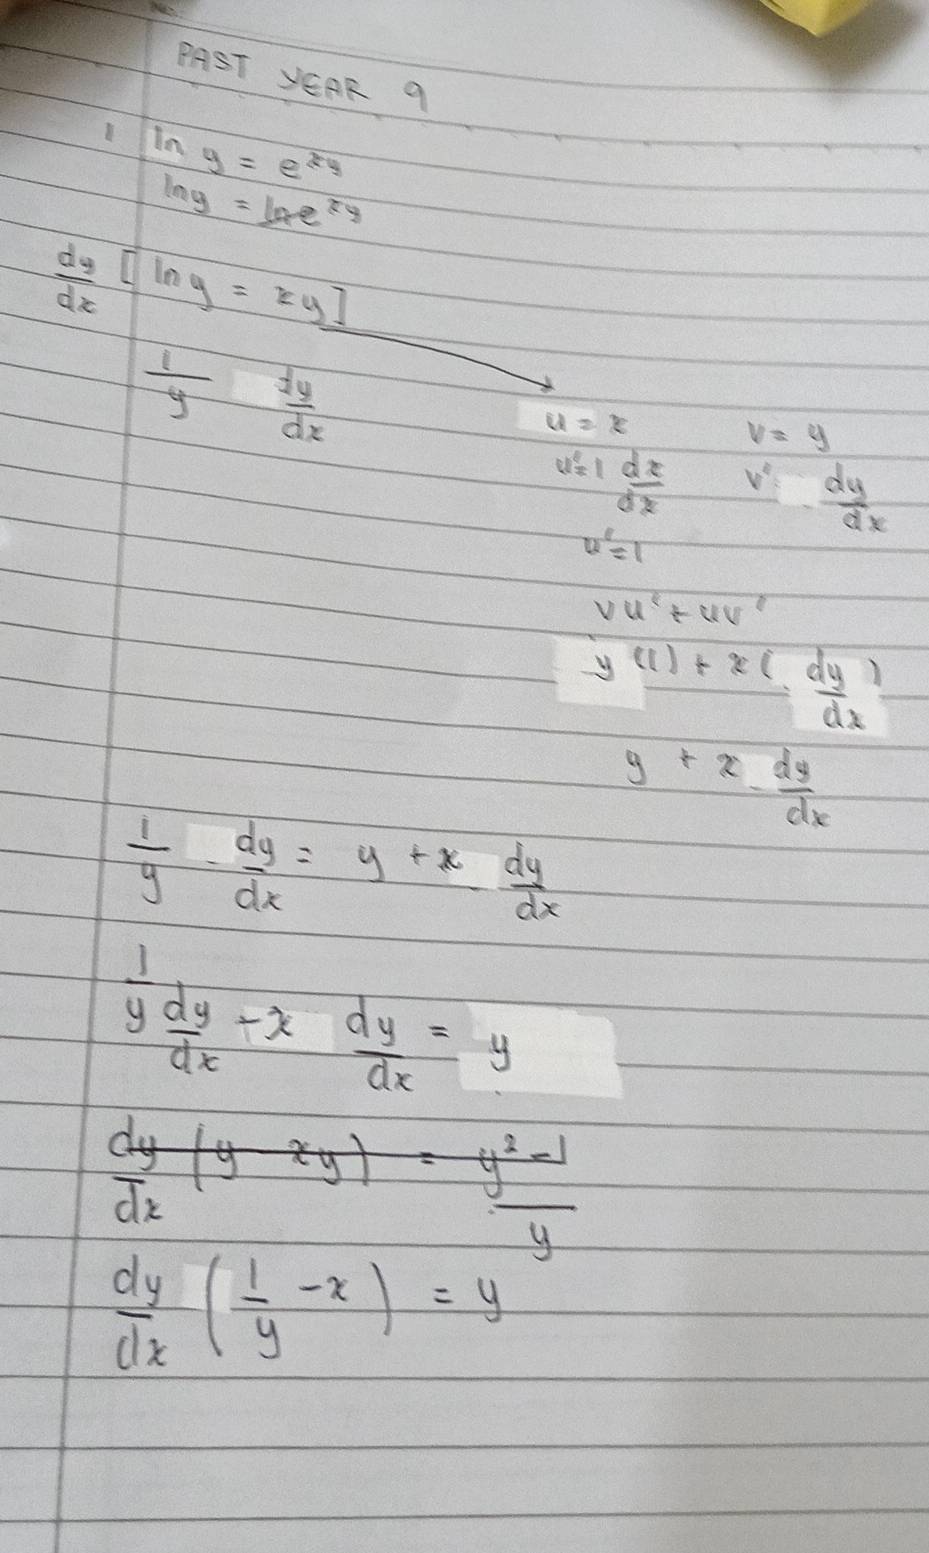 PAST YEAR 9
1 ln y = e^xy
ln y = ln e^xy
dy/dx [ ln y = xy ]
1/y dy/dx
u = x v = y
u' = 1 dx/dx v' dy/dx
u' = 1
vu' + uv'
y (1) + x ( dy/dx )
y + x dy/dx
1/y dy/dx = y + x dy/dx
1/y dy/dx - x dy/dx = y
dy/dx (y xy) = y² - 1/y
dy/dx ( 1/y - x ) = y